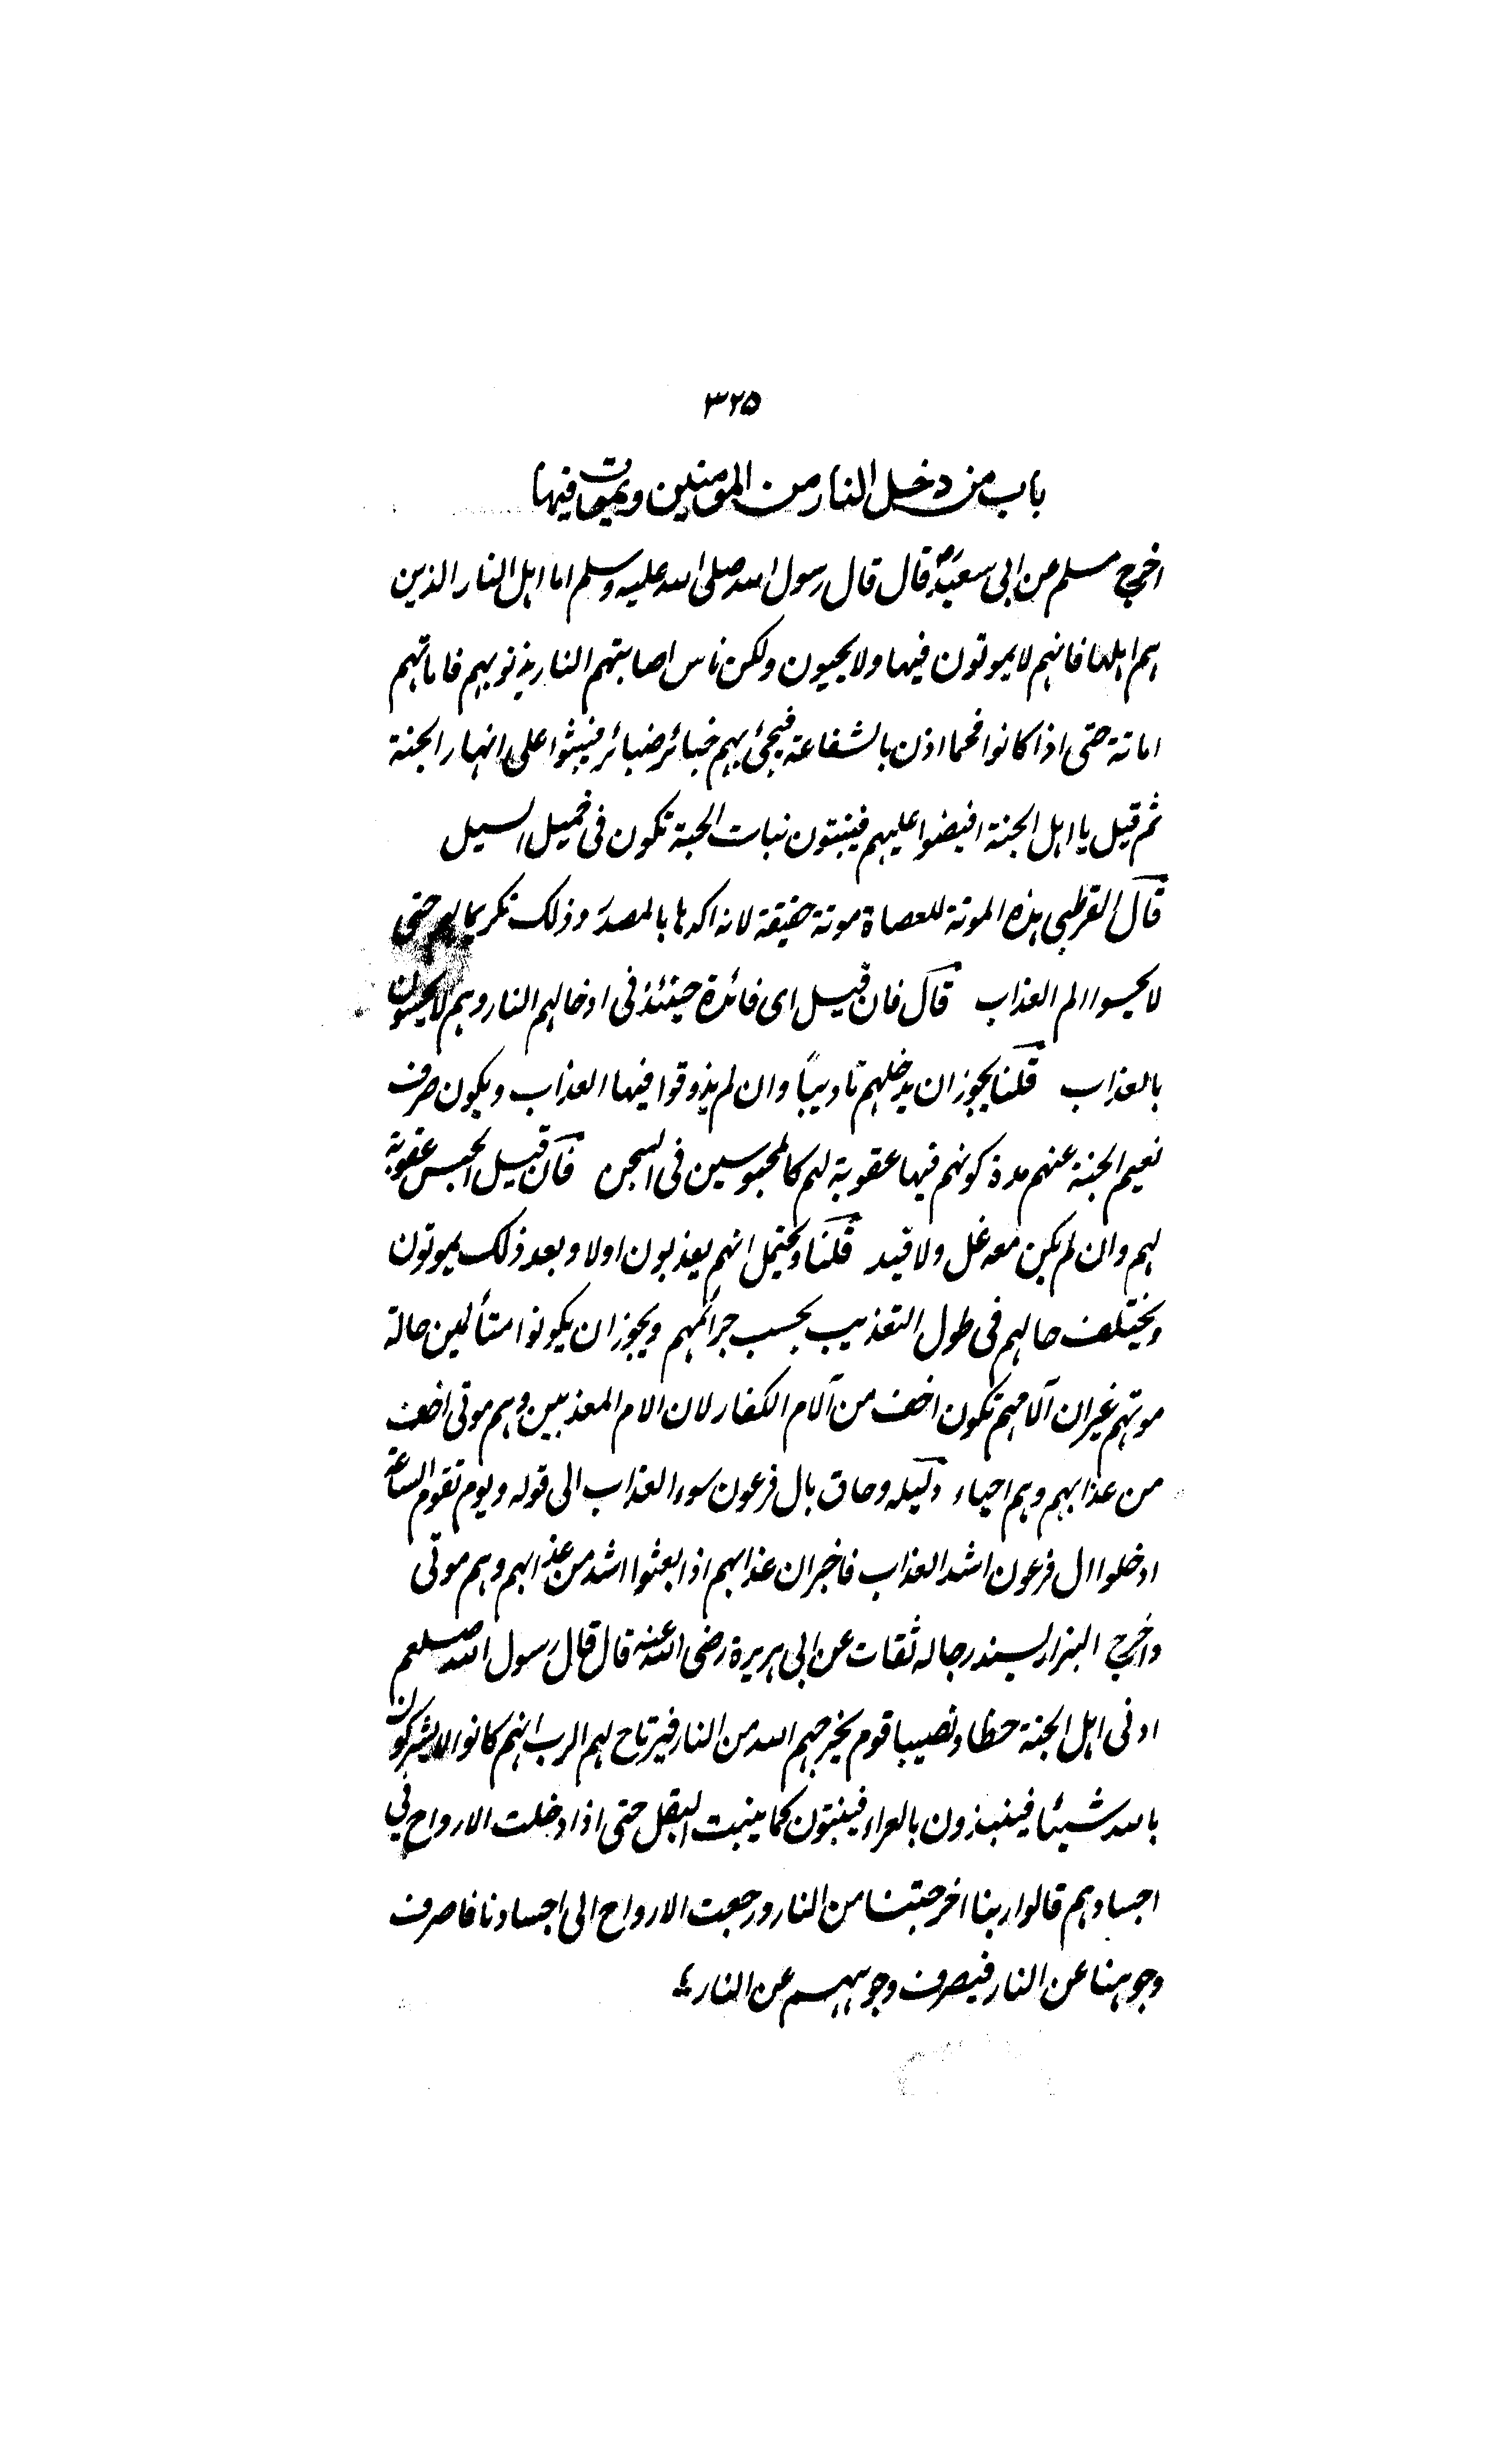 ۳۲۵
باب من دخل النار من المؤمنين ويموت فيها
اخرج مسلم عن ابى سعيدؓ قال قال رسول الله صلى الله عليه وسلم اما اهل النار الذين
هم اهلها فانهم لا يموتون فيها ولا يحيون ولكن ناس اصابتهم النار بذنوبهم فاماتهم
اماتة حتى اذا كانوا فحما اذن بالشفاعة فيجئ بهم ضبائر ضبائر فبثوا على انهار الجنة
ثم قيل يا اهل الجنة افيضوا عليهم فينبتون نبات الحبة تكون فى حميل السيل
قال القرطبى هذه الموتة للعصاة موتة حقيقة لانه اكدها بالمصدر وذلك تكريما لهم حتى
لا يحسوا الم العذاب قال فان قيل اى فائدة حينئذ فى ادخالهم النار وهم لا يحسون
بالعذاب قلنا يجوز ان يدخلهم تاديبًا وان لم يذوقوا فيها العذاب ويكون صرف
نعيم الجنة عنهم مدة كونهم فيها عقوبة لهم كالمحبوسين فى السجن فان قيل الحبس عقوبة
لهم وان لم يكن معه غل ولا قيد قلنا ويحتمل انهم يعذبون اولا وبعد ذلك يموتون
ويختلف حالهم فى طول التعذيب بحسب جرائمهم ويجوز ان يكونوا متألمين حالة
موتهم غير ان آلامهم تكون اخف من آلام الكفار لان الام المعذبين وهم موتى اخف
من عذابهم وهم احياء دليله وحاق بال فرعون سوء العذاب الى قوله ويوم تقوم الساعة
ادخلوا ال فرعون اشد العذاب فاخبر ان عذابهم اذا بعثوا اشد من عذابهم وهم موتى
واخرج البزار بسند رجاله ثقات عن ابى هريرة رضى الله عنه قال قال رسول الله صلعم
ادنى اهل الجنة حظا ونصيبا قوم يخرجهم الله من النار فيرتاح لهم الرب انهم كانوا لا يشركون
بالله شيئا فينبذون بالعراء فينبتون كما ينبت البقل حتى اذا دخلت الارواح فى
اجسادهم قالوا ربنا اخرجتنا من النار ورجعت الارواح الى اجسادنا فاصرف
وجوهنا عن النار فيصرف وجوههم عن النار